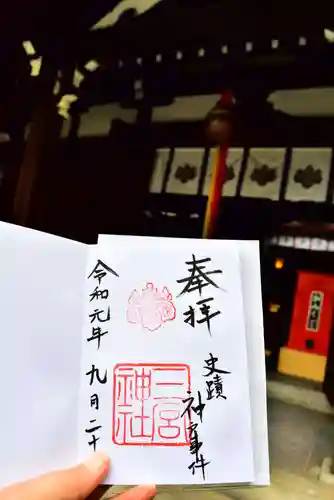 奉拝
史蹟
神戸事件
一宮神社
令和元年九月二十